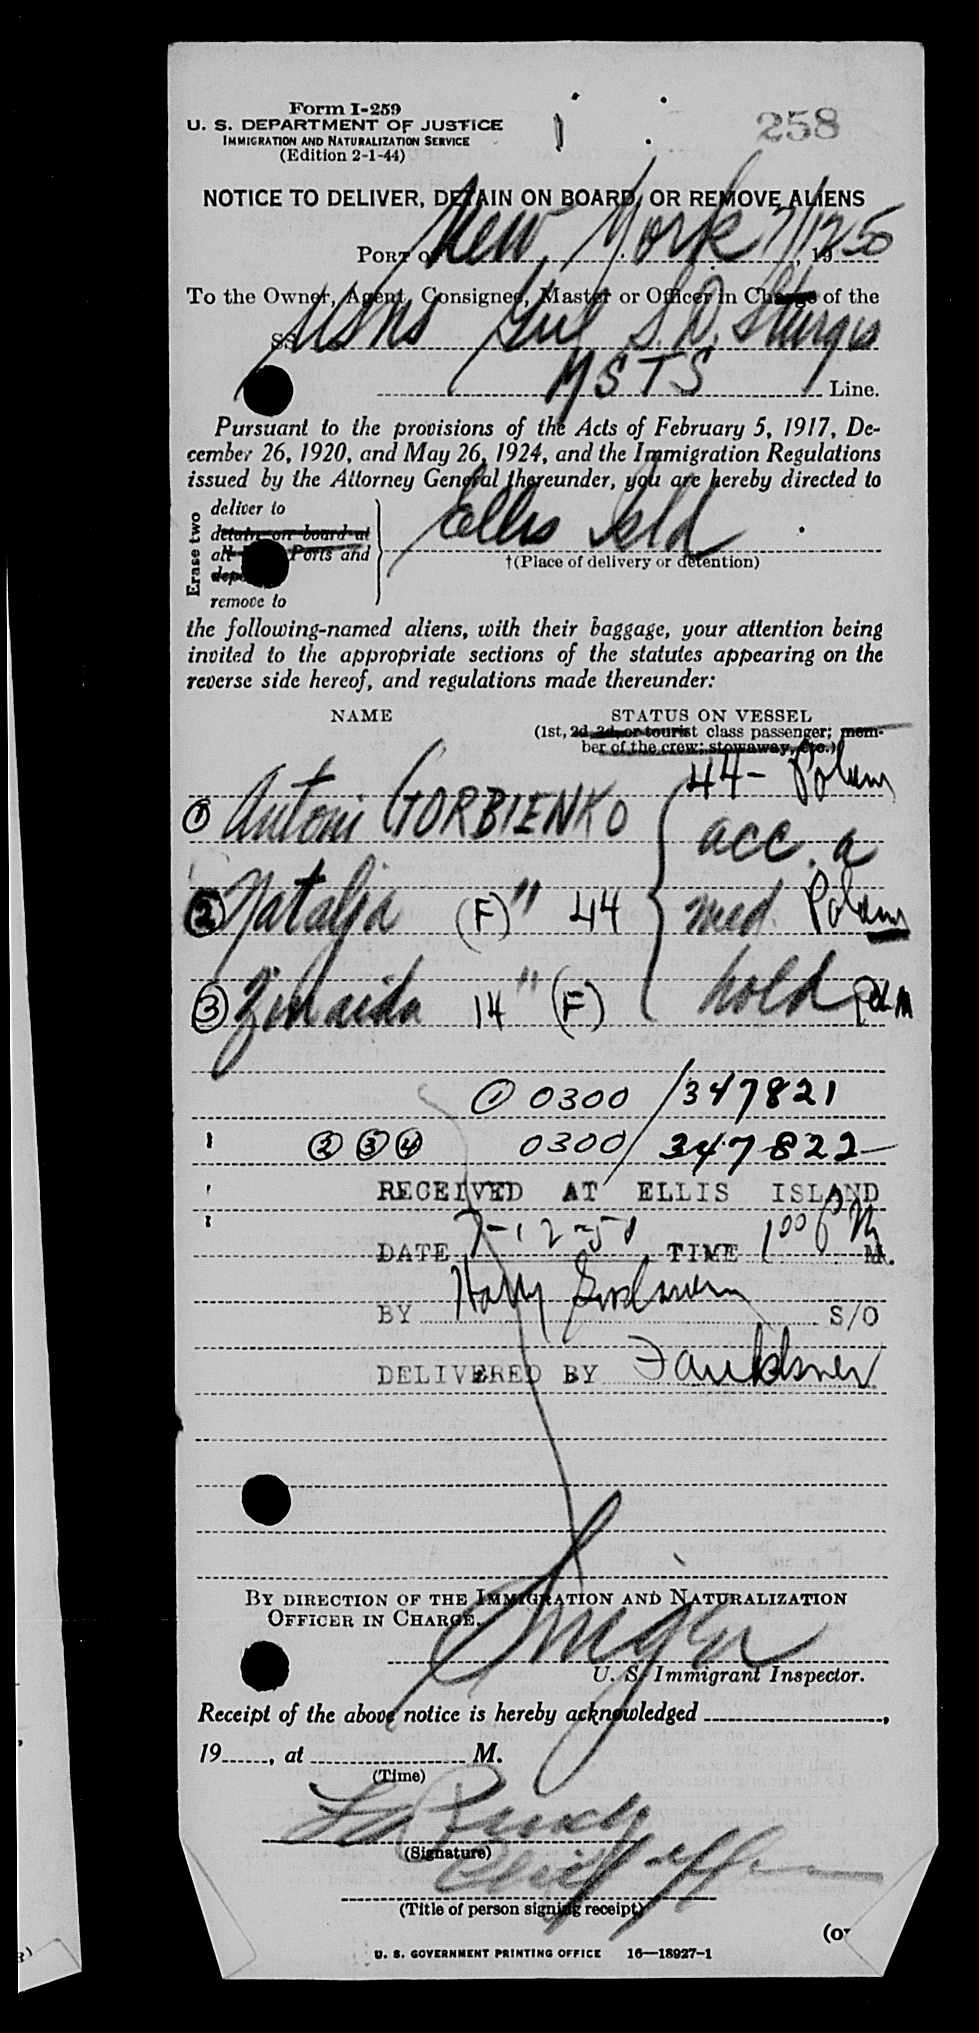 Form I-259
U. S. DEPARTMENT OF JUSTICE
IMMIGRATION AND NATURALIZATION SERVICE
(Edition 2-1-44)
258
NOTICE TO DELIVER, DETAIN ON BOARD, OR REMOVE ALIENS
PORT OF New York 7/12, 1950
To the Owner, Agent, Consignee, Master or Officer in Charge of the
SS USNS Gnl S. D. Sturgis
MSTS Line.
Pursuant to the provisions of the Acts of February 5, 1917, De-
cember 26, 1920, and May 26, 1924, and the Immigration Regulations
issued by the Attorney General thereunder, you are hereby directed to
Erase two
deliver to
detain on board at
all Ports and
remove to
Ellis Isld
†(Place of delivery or detention)
the following-named aliens, with their baggage, your attention being
invited to the appropriate sections of the statutes appearing on the
reverse side hereof, and regulations made thereunder:
NAME STATUS ON VESSEL
(1st, 2d, 3d, or tourist class passenger; mem-
ber of the crew; stowaway, etc.)
44 -
① Antoni GORBIENKO acc. a
② Natalja (F) " 44 med.
③ Zinaida 14 " (F) hold
① 0300/347821
② ③ ④ 0300/347822
RECEIVED AT ELLIS ISLAND
DATE 7-12-50 TIME 1 00 P M M.
BY Harry S/O
DELIVERED BY Faulkner
BY DIRECTION OF THE IMMIGRATION AND NATURALIZATION
OFFICER IN CHARGE.
U. S. Immigrant Inspector.
Receipt of the above notice is hereby acknowledged ,
19 , at M.
(Time)
(Signature)
(Title of person signing receipt)
U. S. GOVERNMENT PRINTING OFFICE 16—18927-1